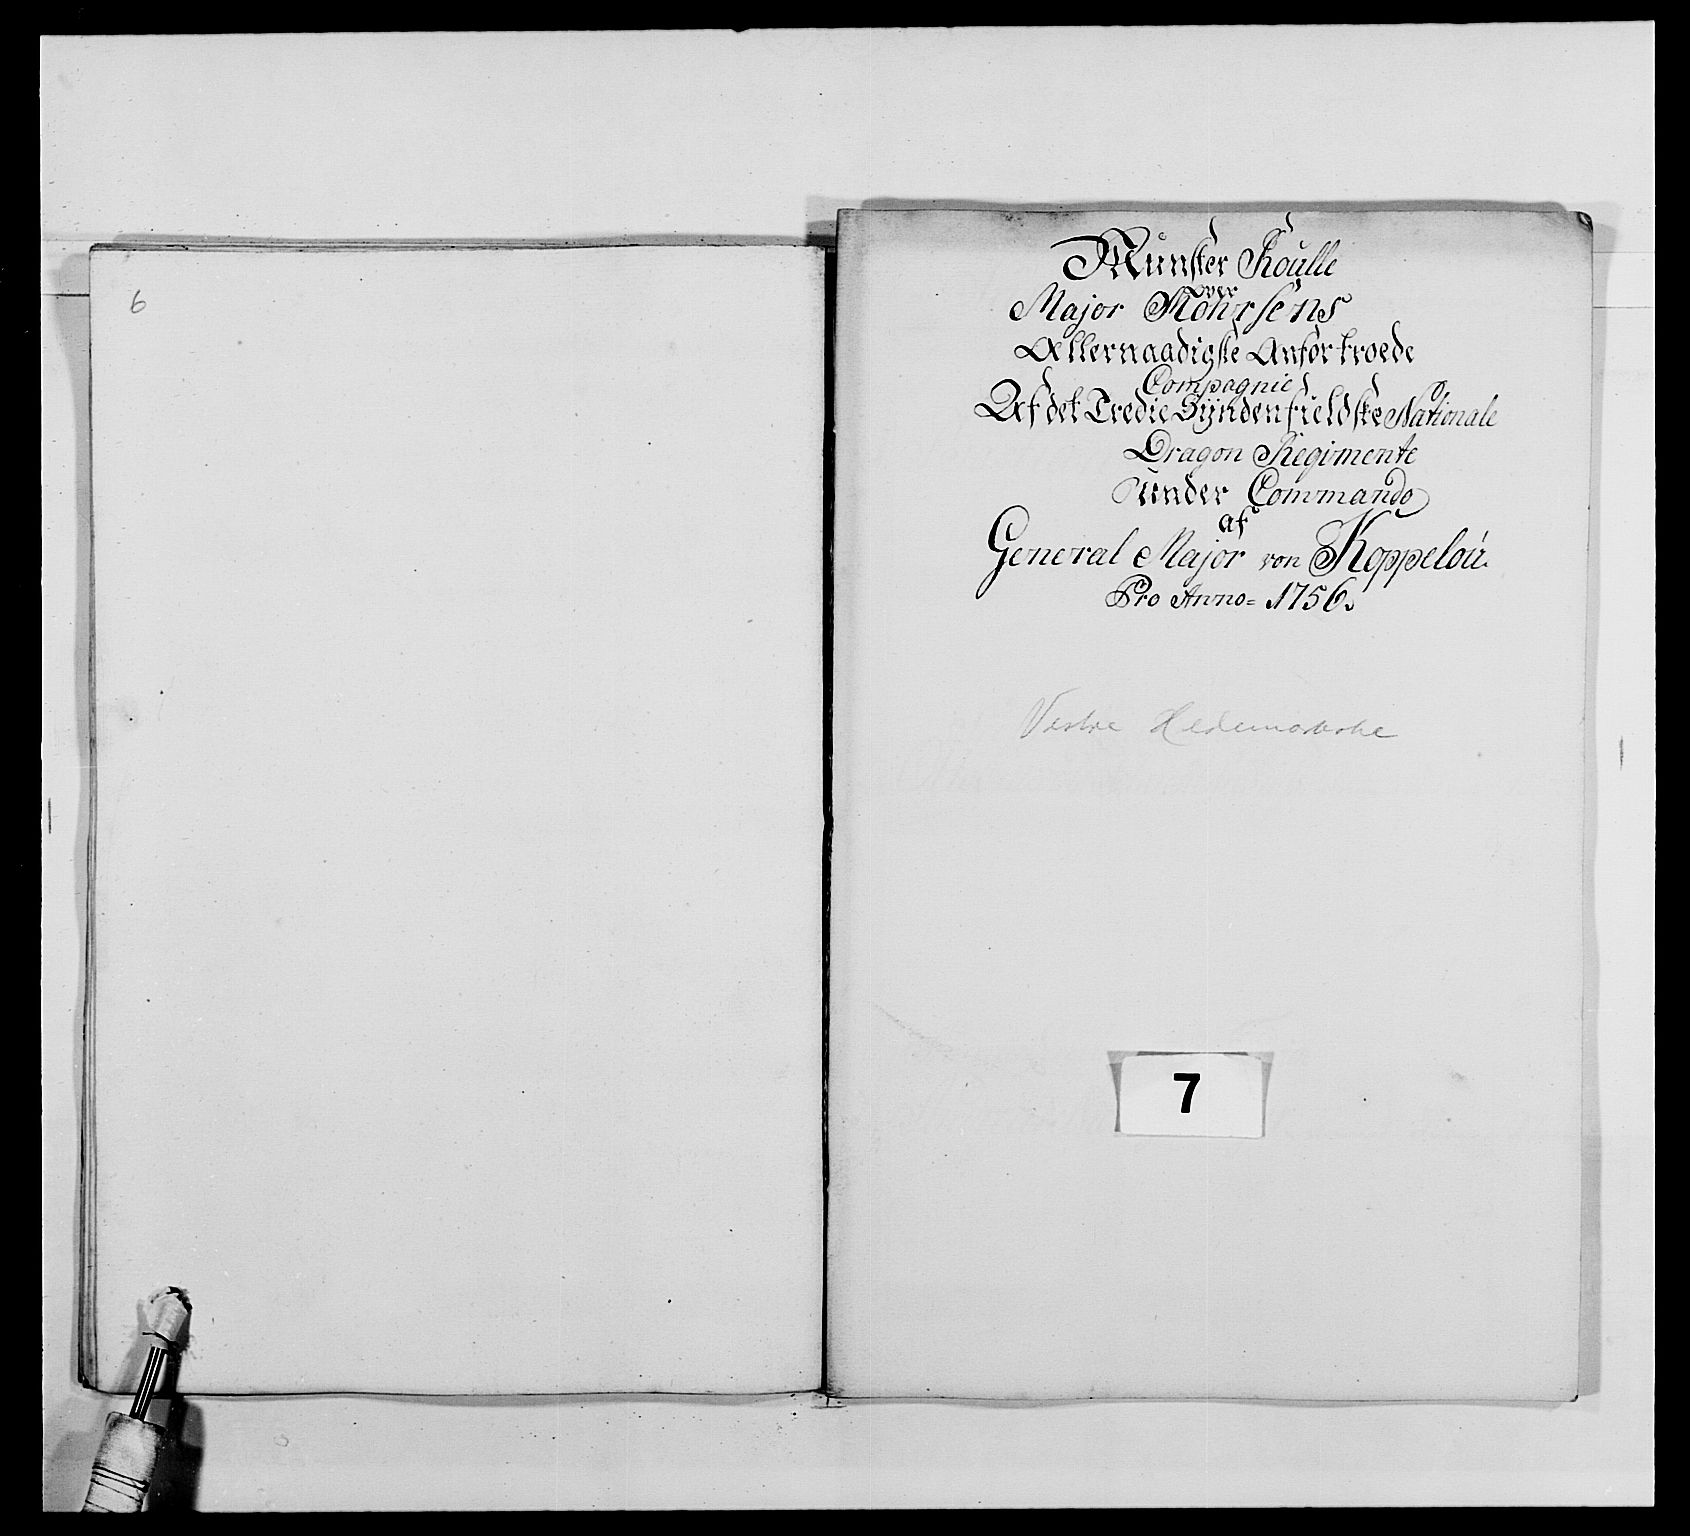 6
Münster Roulle
over
Major Möhrsens
Allernaadigste Anfortroede
Compagnie
Af det Tredie Syndenfieldske Nationale
Dragon Regimente
under Commando
af
General Major von Koppelou.
Pro Anno= 1756.
Vestre Hedemarkske
7